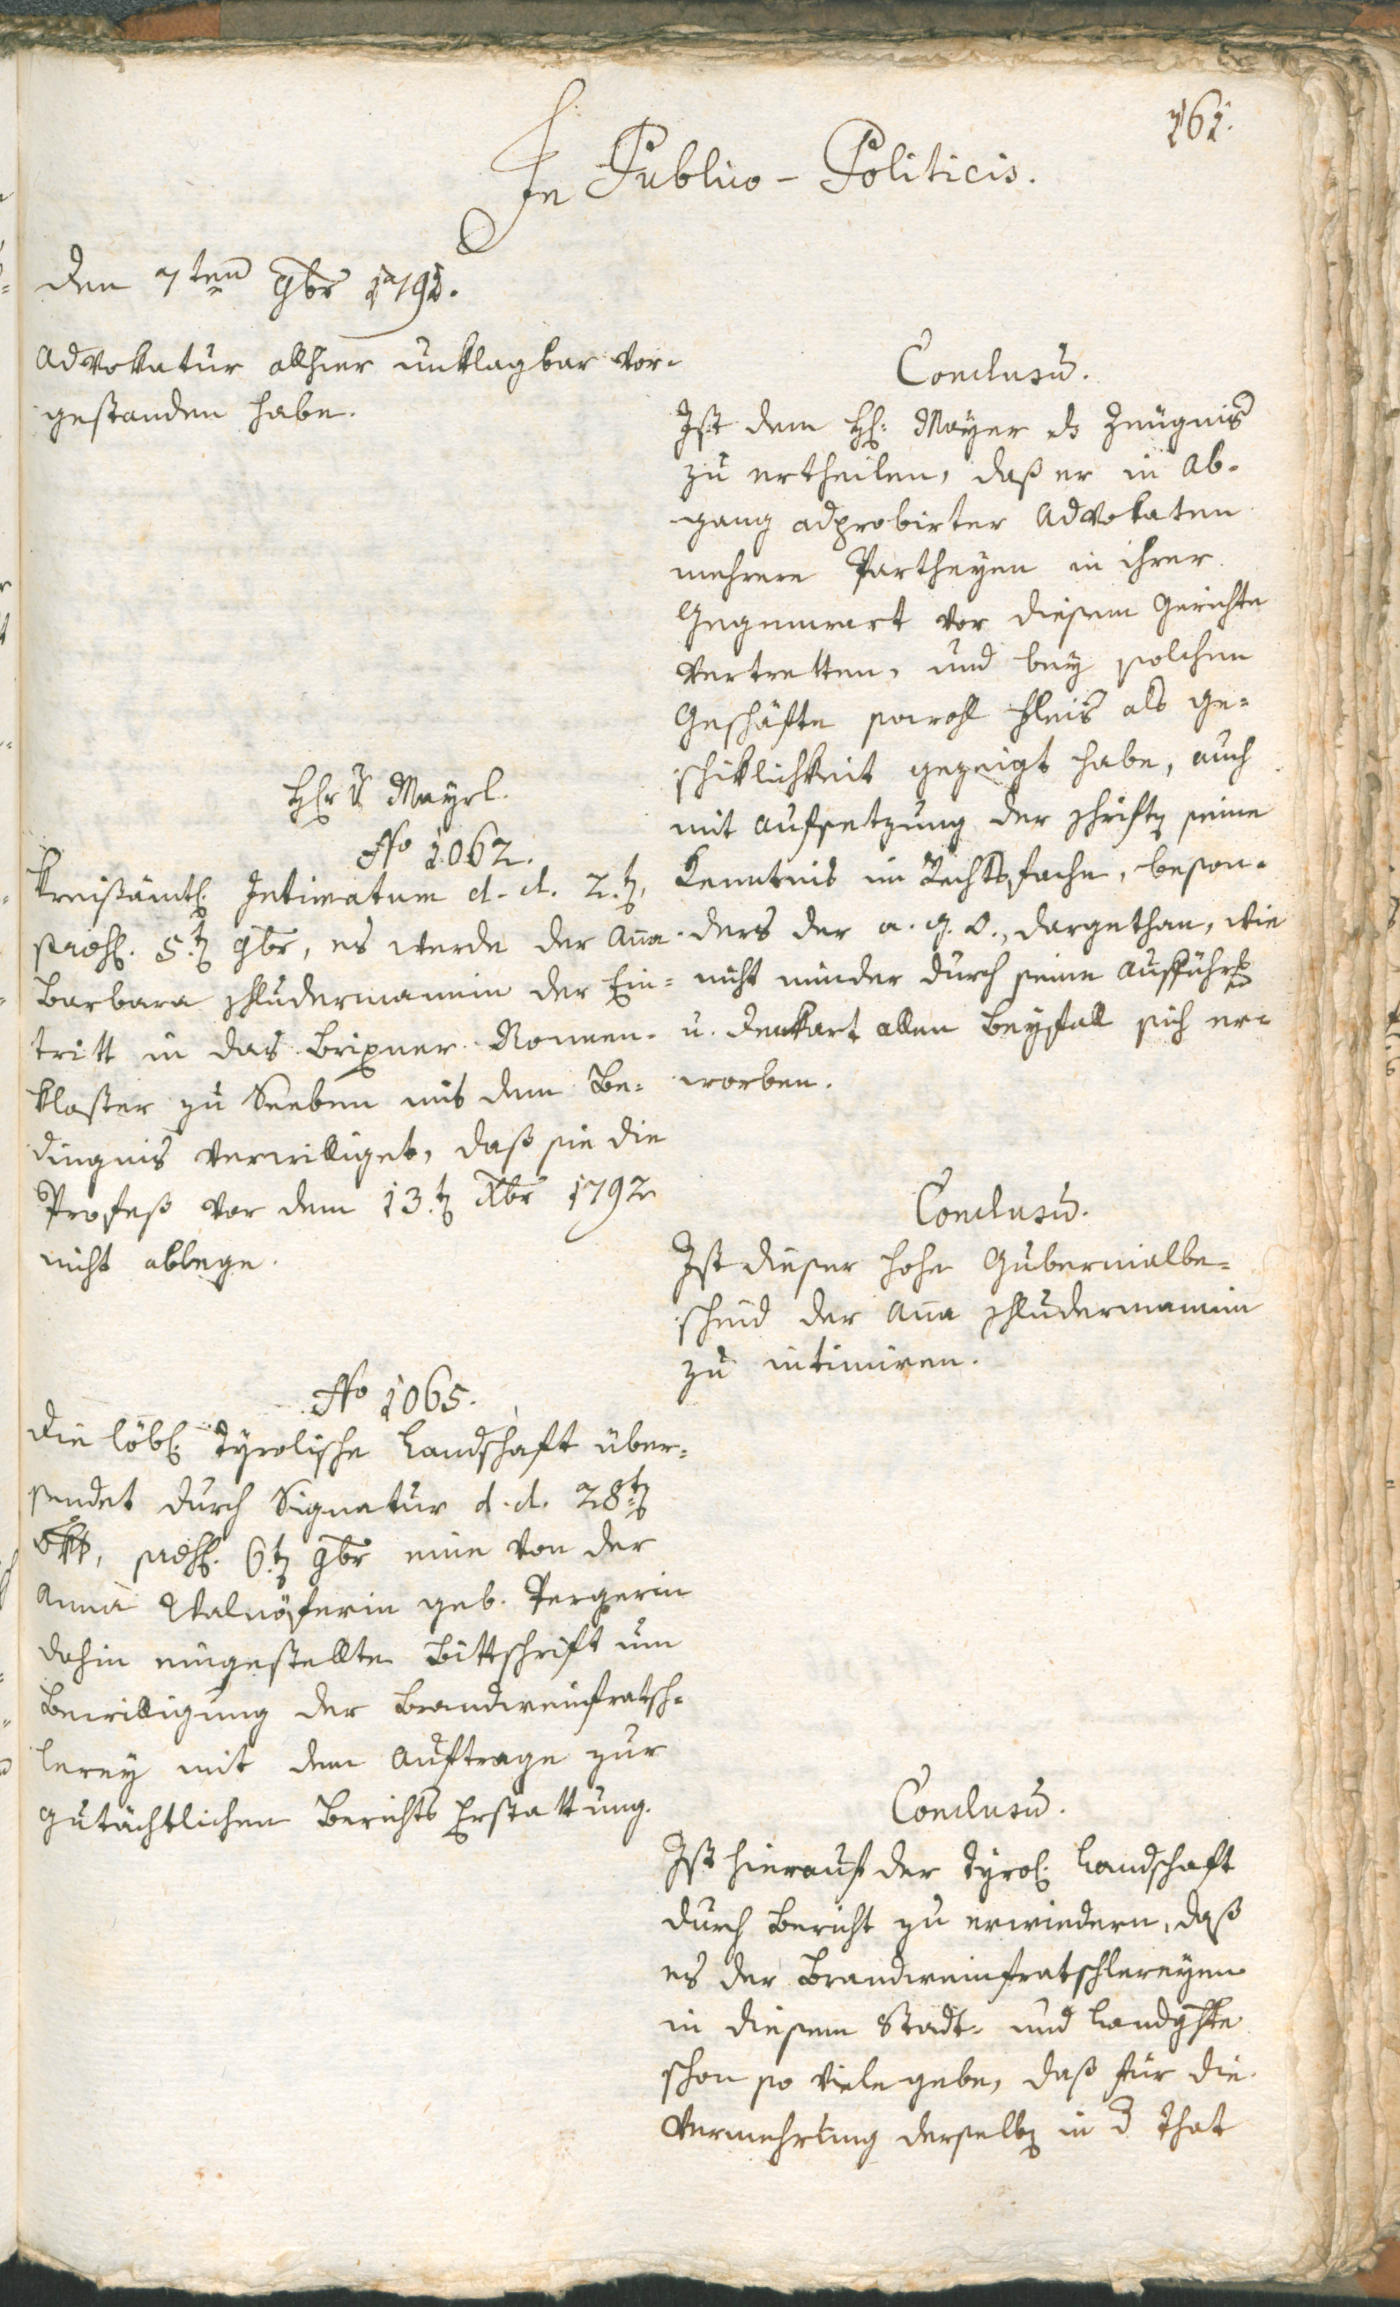 161.
In Publico-Politicis.
den 7ten 9br 1791.
Advokatur allhier unklagbar vor-
gestanden habe.
Conclusū.
Ist dem H: Mayer ds Zeugnis
zu ertheilen, daß er in Ab-
gang adprobirter Advokaten
mehrere Partheyen in ihrer
Gegenwart vor diesem Gerichte
vertretten, und bey solchen
Geschäfte sowohl Fleis als Ge-
schiklichkeit gezeigt habe, auch
mit Aufsetzung der Schriftn seine
Kenntnis im Rechtsfache, beson-
ders der a. g. O., dargethan, wie
nicht minder durch seine Aufführg
u. Denkart allen Beyfall sich er-
worben.
Hr v Mayrl.
No 1062.
Kreisämtl. Intimatum d. d. 2.tn,
praes. 5.tn 9br, es werde der Aña
Barbara Schludermannin der Ein-
tritt in das Brixner Nonnen-
kloster zu Seeben mit dem Be-
dingnis verwilliget, daß sie die
Profeß vor dem 13.tn Xbr 1792
nicht ablege.
Conclusū.
Ist dieser hohe Gubernialbe-
scheid der Aña Schludermannin
zu intimiren.
No 1065.
Die löbl. Tyrolische Landschaft über-
sendet durch Signatur d. d. 28tn
8br, praes. 6.tn 9br eine von der
Anna Walnöferin geb. Pergerin
dahin eingestellte Bittschrift um
Bewilligung der Brandweinfratsch-
lerey mit dem Auftrage zur
gutächtlichen Berichts Erstattung.
Conclusū.
Ist hierauf der Tyrol. Landschaft
durch Bericht zu erwiedern, daß
es der Brandweinfratschlereyen
in diesem Stadt- und Landgħte
schon so viele gebe, daß für die
Vermehrung derselbn in d That